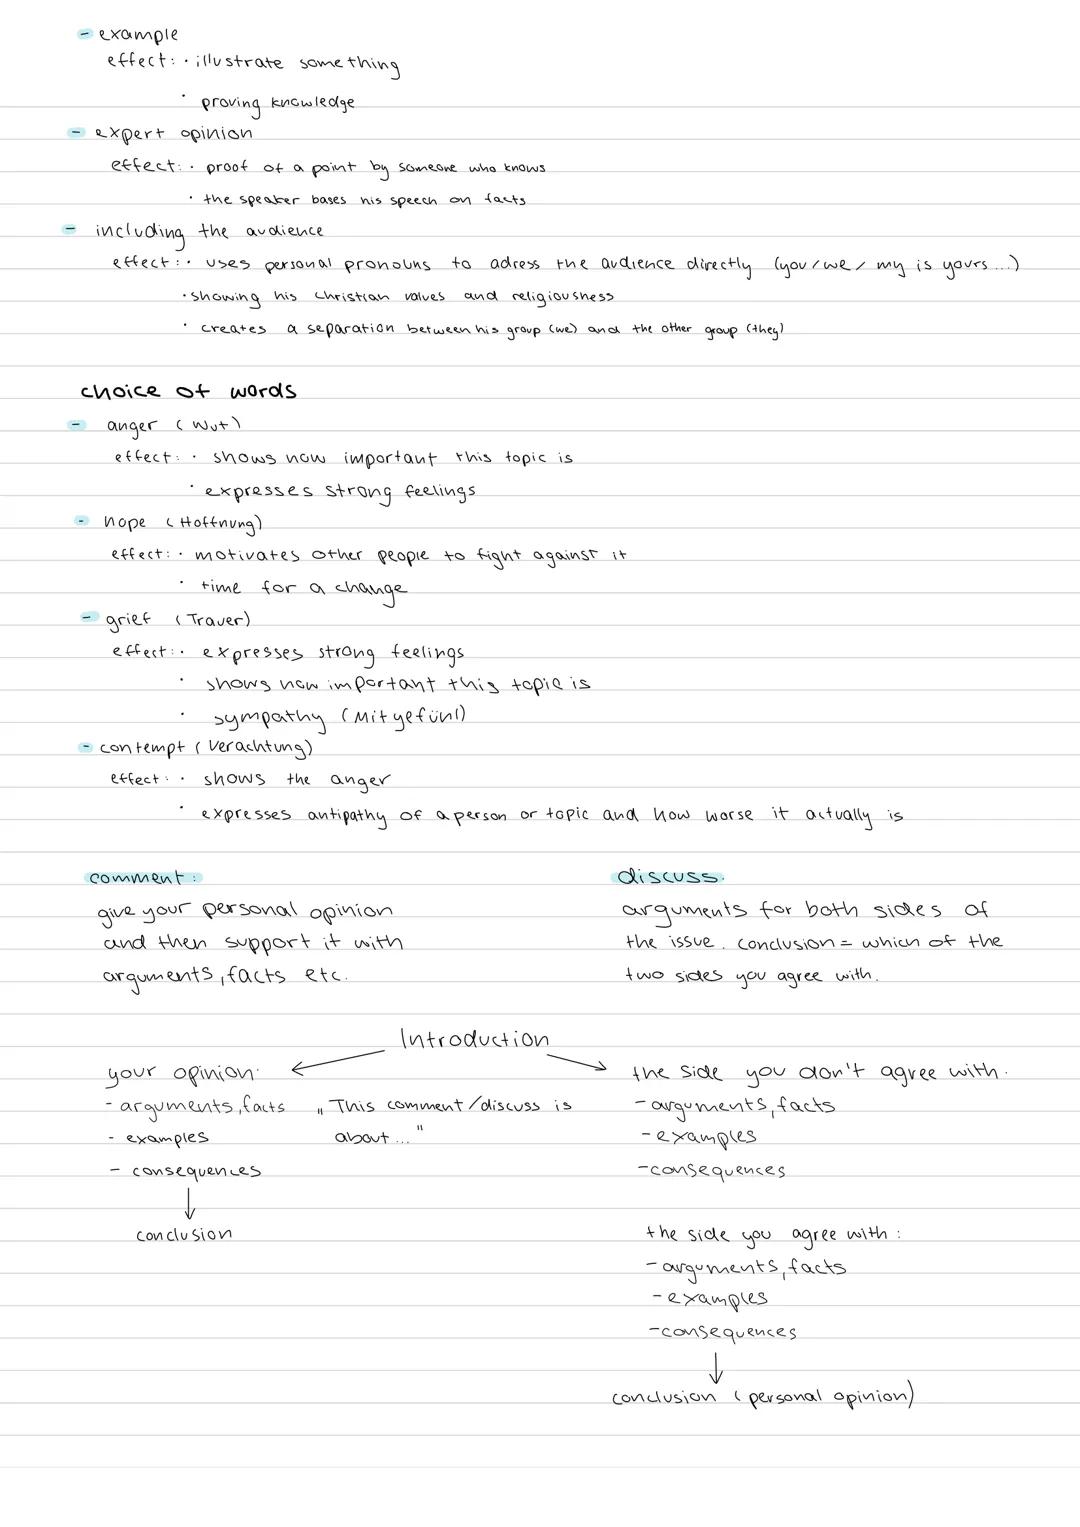 - example
effect: · illustrate something
· proving knowledge
- expert opinion
effect: · proof of a point by someone who knows
· the speaker bases his speech on facts
- including the audience
effect: · uses personal pronouns to adress the audience directly (you/we/my is yours...)
· showing his christian values and religiousness
· creates a separation between his group (we) and the other group (they)
choice of words
- anger (Wut)
effect: · shows how important this topic is
· expresses strong feelings
- hope (Hoffnung)
effect: · motivates other people to fight against it
· time for a change
- grief (Trauer)
effect: · expresses strong feelings
· shows how important this topic is
· sympathy (Mitgefühl)
- contempt (Verachtung)
effect: · shows the anger
· expresses antipathy of a person or topic and how worse it actually is
comment:
give your personal opinion
and then support it with
arguments, facts etc.
discuss:
arguments for both sides of
the issue. conclusion = which of the
two sides you agree with.
Introduction
"This comment/discuss is
about..."
your opinion:
- arguments, facts
- examples
- consequences
↓
conclusion
the side you don't agree with:
- arguments, facts
- examples
- consequences
the side you agree with:
- arguments, facts
- examples
- consequences
↓
conclusion (personal opinion)